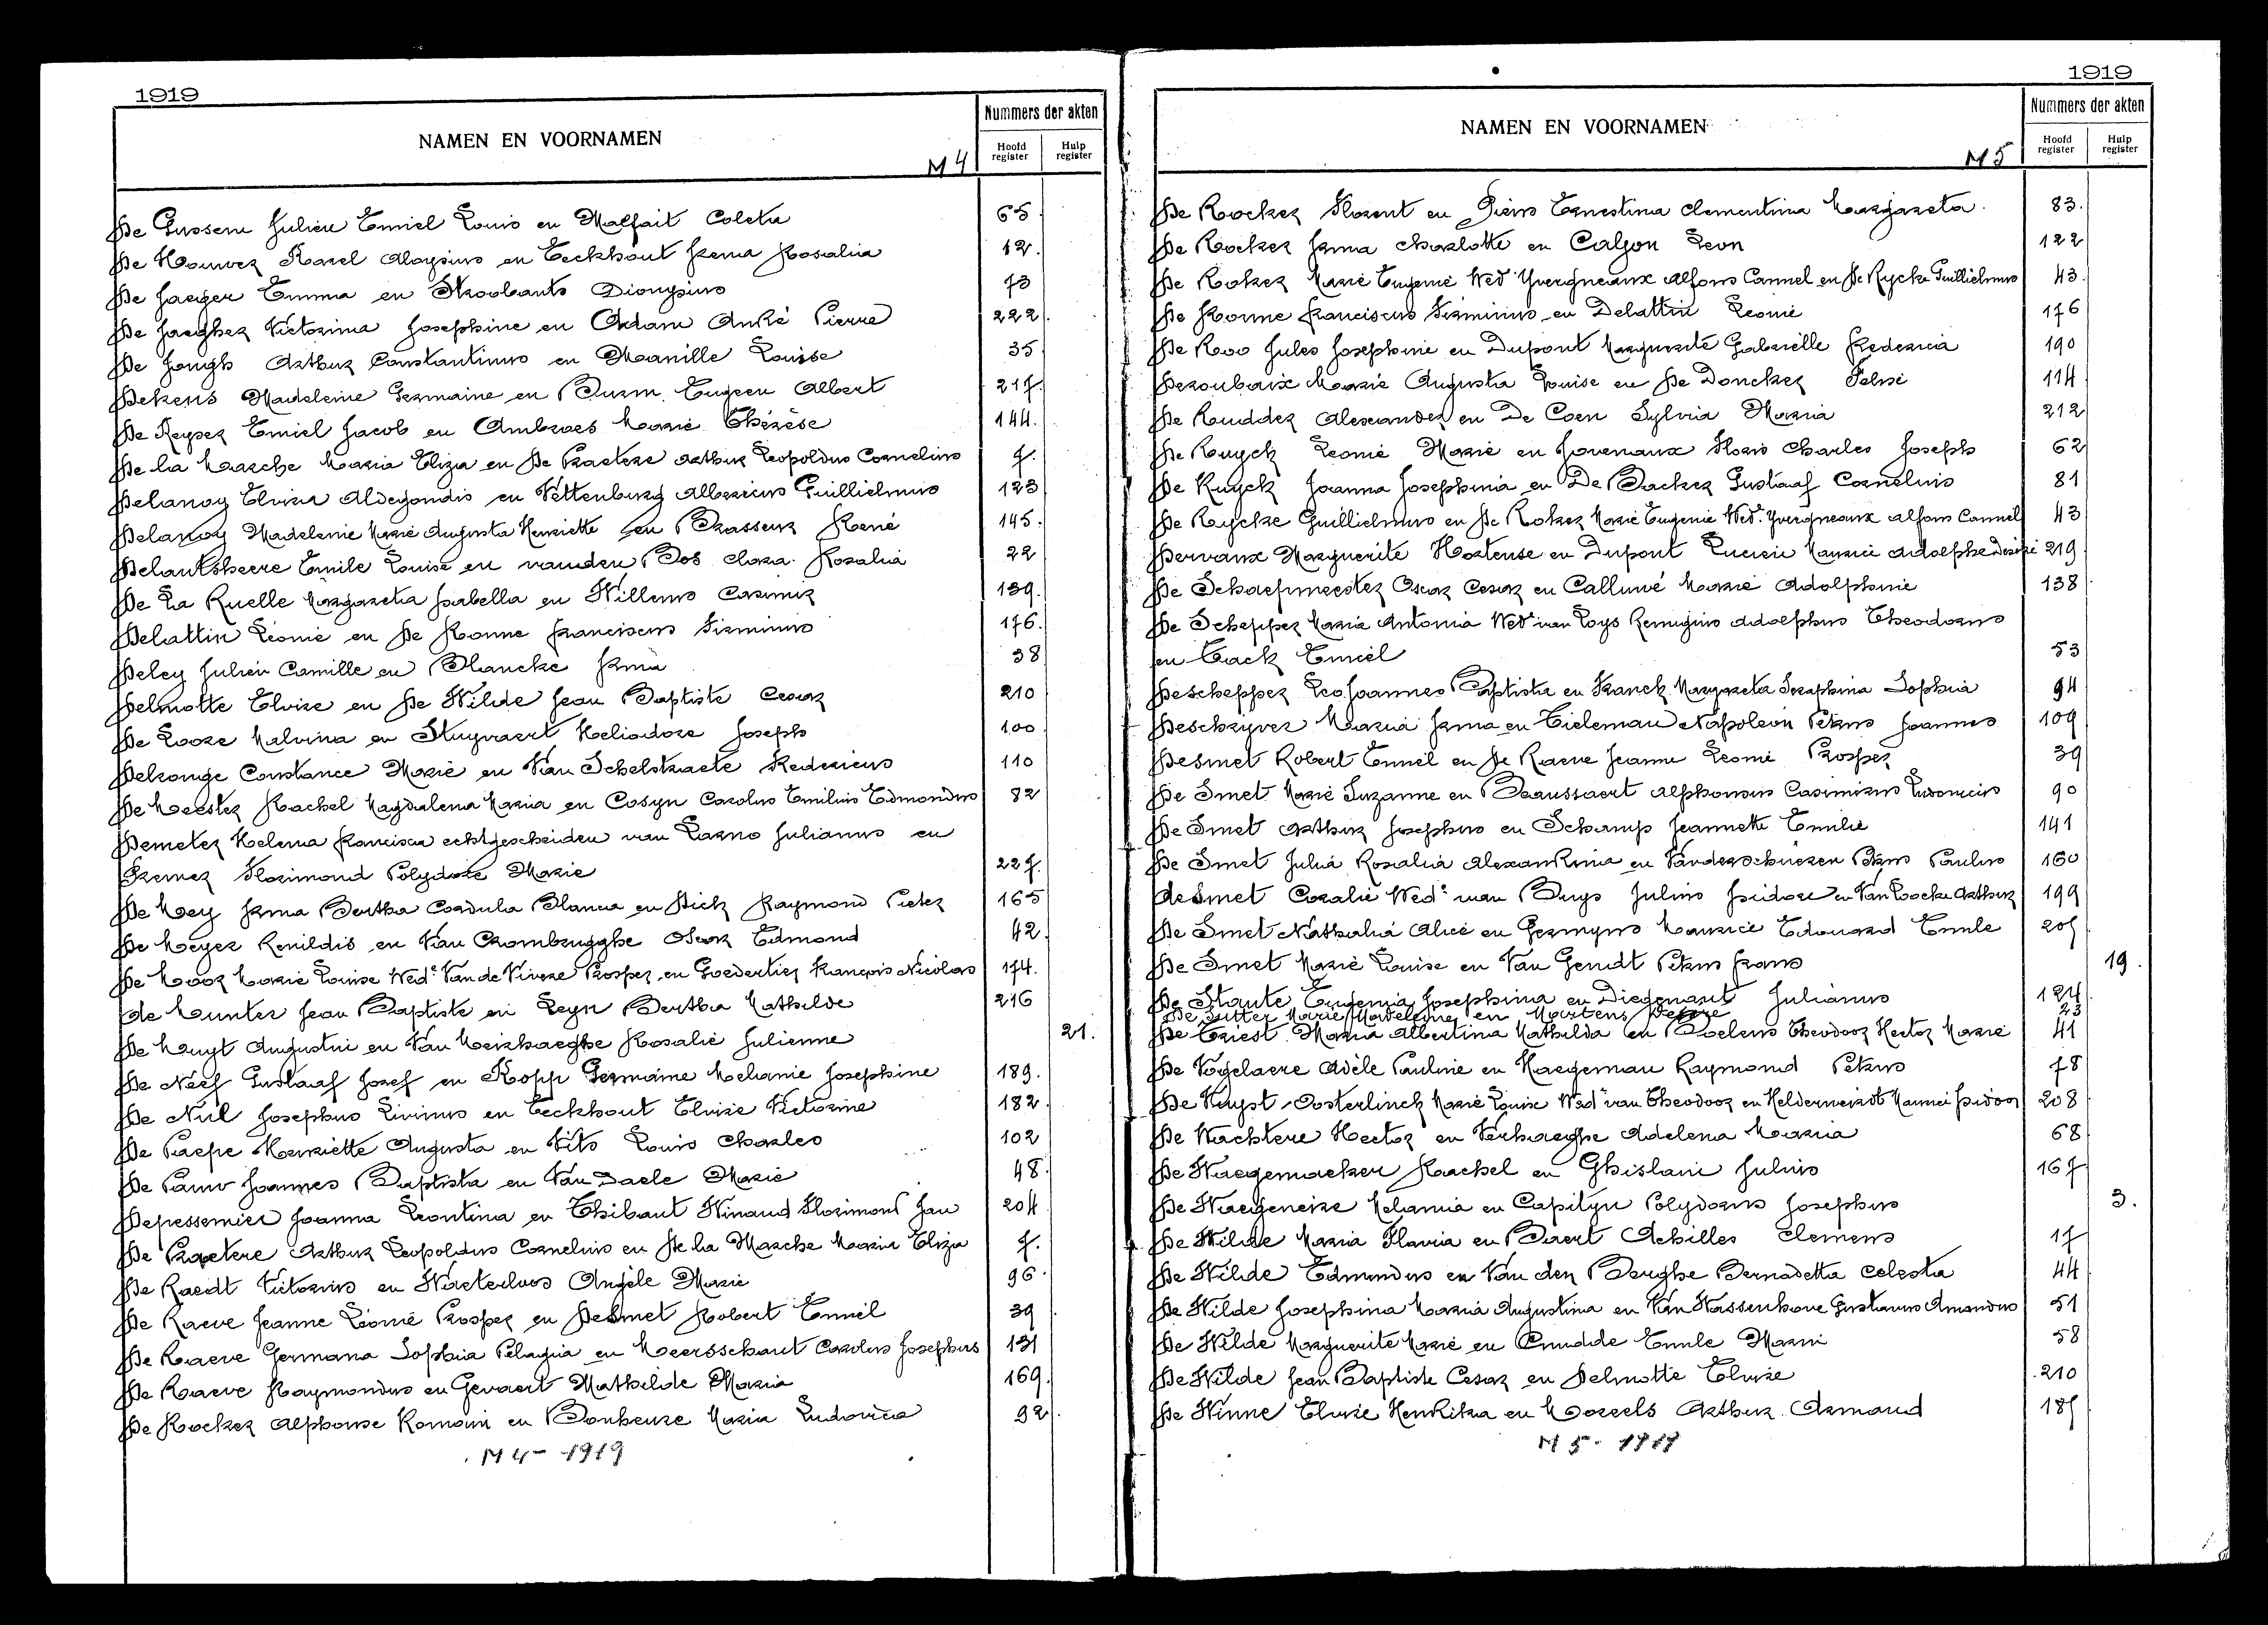 1919
NAMEN EN VOORNAMEN
M 4
Nummers der akten
Hoofd register
Hulp register
De Gussem Julien Emiel Louis en Malfait Coleta 65.
De Houwer Karel Aloysius en Eeckhout Irma Rosalia 12.
De Jaeger Emma en Stroobants Dionysius 73
De Jaegher Victorina Josephine en Adam André Pierre 222.
De Jongh Arthur Constantinus en Manille Louise 35
Dekens Madeleine Germaine en Burm Eugeen Albert 217.
De Keyser Emiel Jacob en Ambroes Marie Thérèse 144.
De la Marche Maria Eliza en De Praetere Arthur Leopoldus Cornelius 7.
Delanoy Elvira Aldegondis en Vettenburg Albericus Guillielmus 123
Delanoy Madeleine Marie Augusta Henriette en Brasseur René 145.
Delantsheere Emile Louise en vanden Bos Clara Rosalia 22
De La Ruelle Margareta Isabella en Willems Casimir 139.
Delattin Léonie en De Ronne Franciscus Firminus 176.
Deley Julien Camille en Blancke Irma 38
Delmotte Elvire en De Wilde Jean Baptiste Cesar 210
De Loore Malvina en Stuyvaert Heliodore Joseph 100
Delronge Constance Marie en Van Schelstraete Fredericus 110
De Meester Rachel Magdalena Maria en Cosyn Carolus Emilius Edmondus 82
Demeter Helena Francisca echtgescheiden van Larno Julianus en
Kremer Florimond Polydore Marie 227.
De Mey Irma Bertha Cordula Blanca en Dick Raymond Pieter 165
De Meyer Renildis en Van Crombrugghe Oscar Edmond 42.
De Moor Marie Louise Wede Van de Vivere Prosper en Goedertier François Nicolas 174.
de Munter Jean Baptiste en Leyn Bertha Mathilde 216
De Muyt Augustin en Van Meirhaeghe Rosalie Julienne 21.
De Neef Gustaaf Jozef en Kopp Germaine Melanie Josephine 189.
De Nul Josephus Livinus en Eeckhout Elvire Victorine 182
De Paepe Henriette Augusta en Vits Louis Charles 102
De Pauw Joannes Baptista en Van Daele Marie 48.
Depessemier Joanna Leontina en Thibaut Winand Florimond Jan 204
De Praetere Arthur Leopoldus Cornelius en De la Marche Maria Eliza 7.
De Raedt Victorinus en Waeterloos Angèle Marie 96.
De Raeve Jeanne Léonie Prosper en Desmet Robert Emiel 39
De Raeve Germana Sophia Pelagia en Meersschaut Carolus Josephus 131
De Raeve Raymondus en Gevaert Mathilde Maria 169.
De Rocker Alphonse Romain en Bonheure Maria Ludovica 92.
M 4 - 1919
1919
NAMEN EN VOORNAMEN
M 5
Nummers der akten
Hoofd register
Hulp register
De Rocker Florent en Piens Ernestina Clementina Margareta 83.
De Rocker Irma Charlotte en Caljon Leon 122
De Roker Marie Eugenie Wed Yvergneaux Alfons Cannel en De Rycke Guillielmus 43.
De Ronne Franciscus Firminus en Delattin Leonie 176
De Roo Jules Josephine en Dupont Marguerite Gabrielle Frederica 190
Deroubaix Marie Augusta Louise en De Doncker Felix 114
De Rudder Alexander en De Coen Sylvia Maria 212
De Ruyck Leonie Marie en Jovenaux Floris Charles Joseph 62
De Ruyck Joanna Josephina en De Backer Gustaaf Cornelius 81
De Rycke Guillielmus en De Roker Marie Eugenie Wed. Yvergneaux Alfons Cannel 43
Dervaux Marguerite Hortense en Dupont Lucien Maurice Adolphe Desiré 219.
De Schaepmeester Oscar Cesar en Calluwé Marie Adolphine 138
De Schepper Maria Antonia Wed van Loys Remigius Adolphus Theodorus
en Tack Emiel 53
Deschepper Leo Joannes Baptista en Franck Margareta Seraphina Sophia 94
Deschryver Maria Irma en Tieleman Napoleon Petrus Joannes 109
Desmet Robert Emiel en De Raeve Jeanne Leonie Prosper 39
De Smet Marie Suzanne en Beaussaert Alphonsus Casimirus Ludovicus 90
De Smet Arthur Josephus en Schamp Jeannette Emilie 141
De Smet Julia Rosalia Alexandrina en Vanderschueren Petrus Paulus 160
de Smet Coralie Wede van Buys Julius Isidore en Van Loocke Arthur 199
De Smet Nathalia Alice en Germyns Maurice Edouard Emile 205
De Smet Marie Louise en Van Gendt Petrus Frans 19.
De Staute Eugenia Josephina en Diegenant Julianus 124
De Sutter Marie Madeleine en Martens Desiré 23
De Triest Maria Albertina Mathilda en Boelens Theodoor Hector Marie 41
De Vogelaere Adèle Pauline en Haegeman Raymond Petrus 78
De Vuyst-Oosterlinck Marie Louise Wed van Theodoor en Helderweirdt Maurice Isidoor 208
De Wachtere Hector en Verhaeghe Adelena Maria 68
De Waegemaeker Rachel en Ghislain Julius 167
De Waegeneire Melania en Capityn Polydorus Josephus 3.
De Wilde Maria Flavia en Baert Achilles Clemens 17
De Wilde Edmondus en Van den Berghe Bernadetta Celesta 44
De Wilde Josephina Maria Augustina en Van Wassenhove Gustavus Amandus 51
De Wilde Marguerite Marie en Cnudde Emile Marin 58
De Wilde Jean Baptiste Cesar en Delmotte Elvire 210
De Winne Elvire Hendrika en Moreels Arthur Armand 185
M 5 - 1919